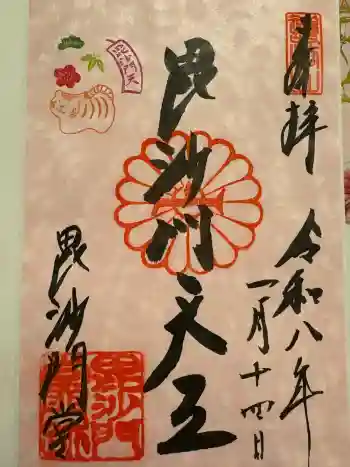 奉拝
令和八年
一月十四日
毘沙門天王
毘沙門堂